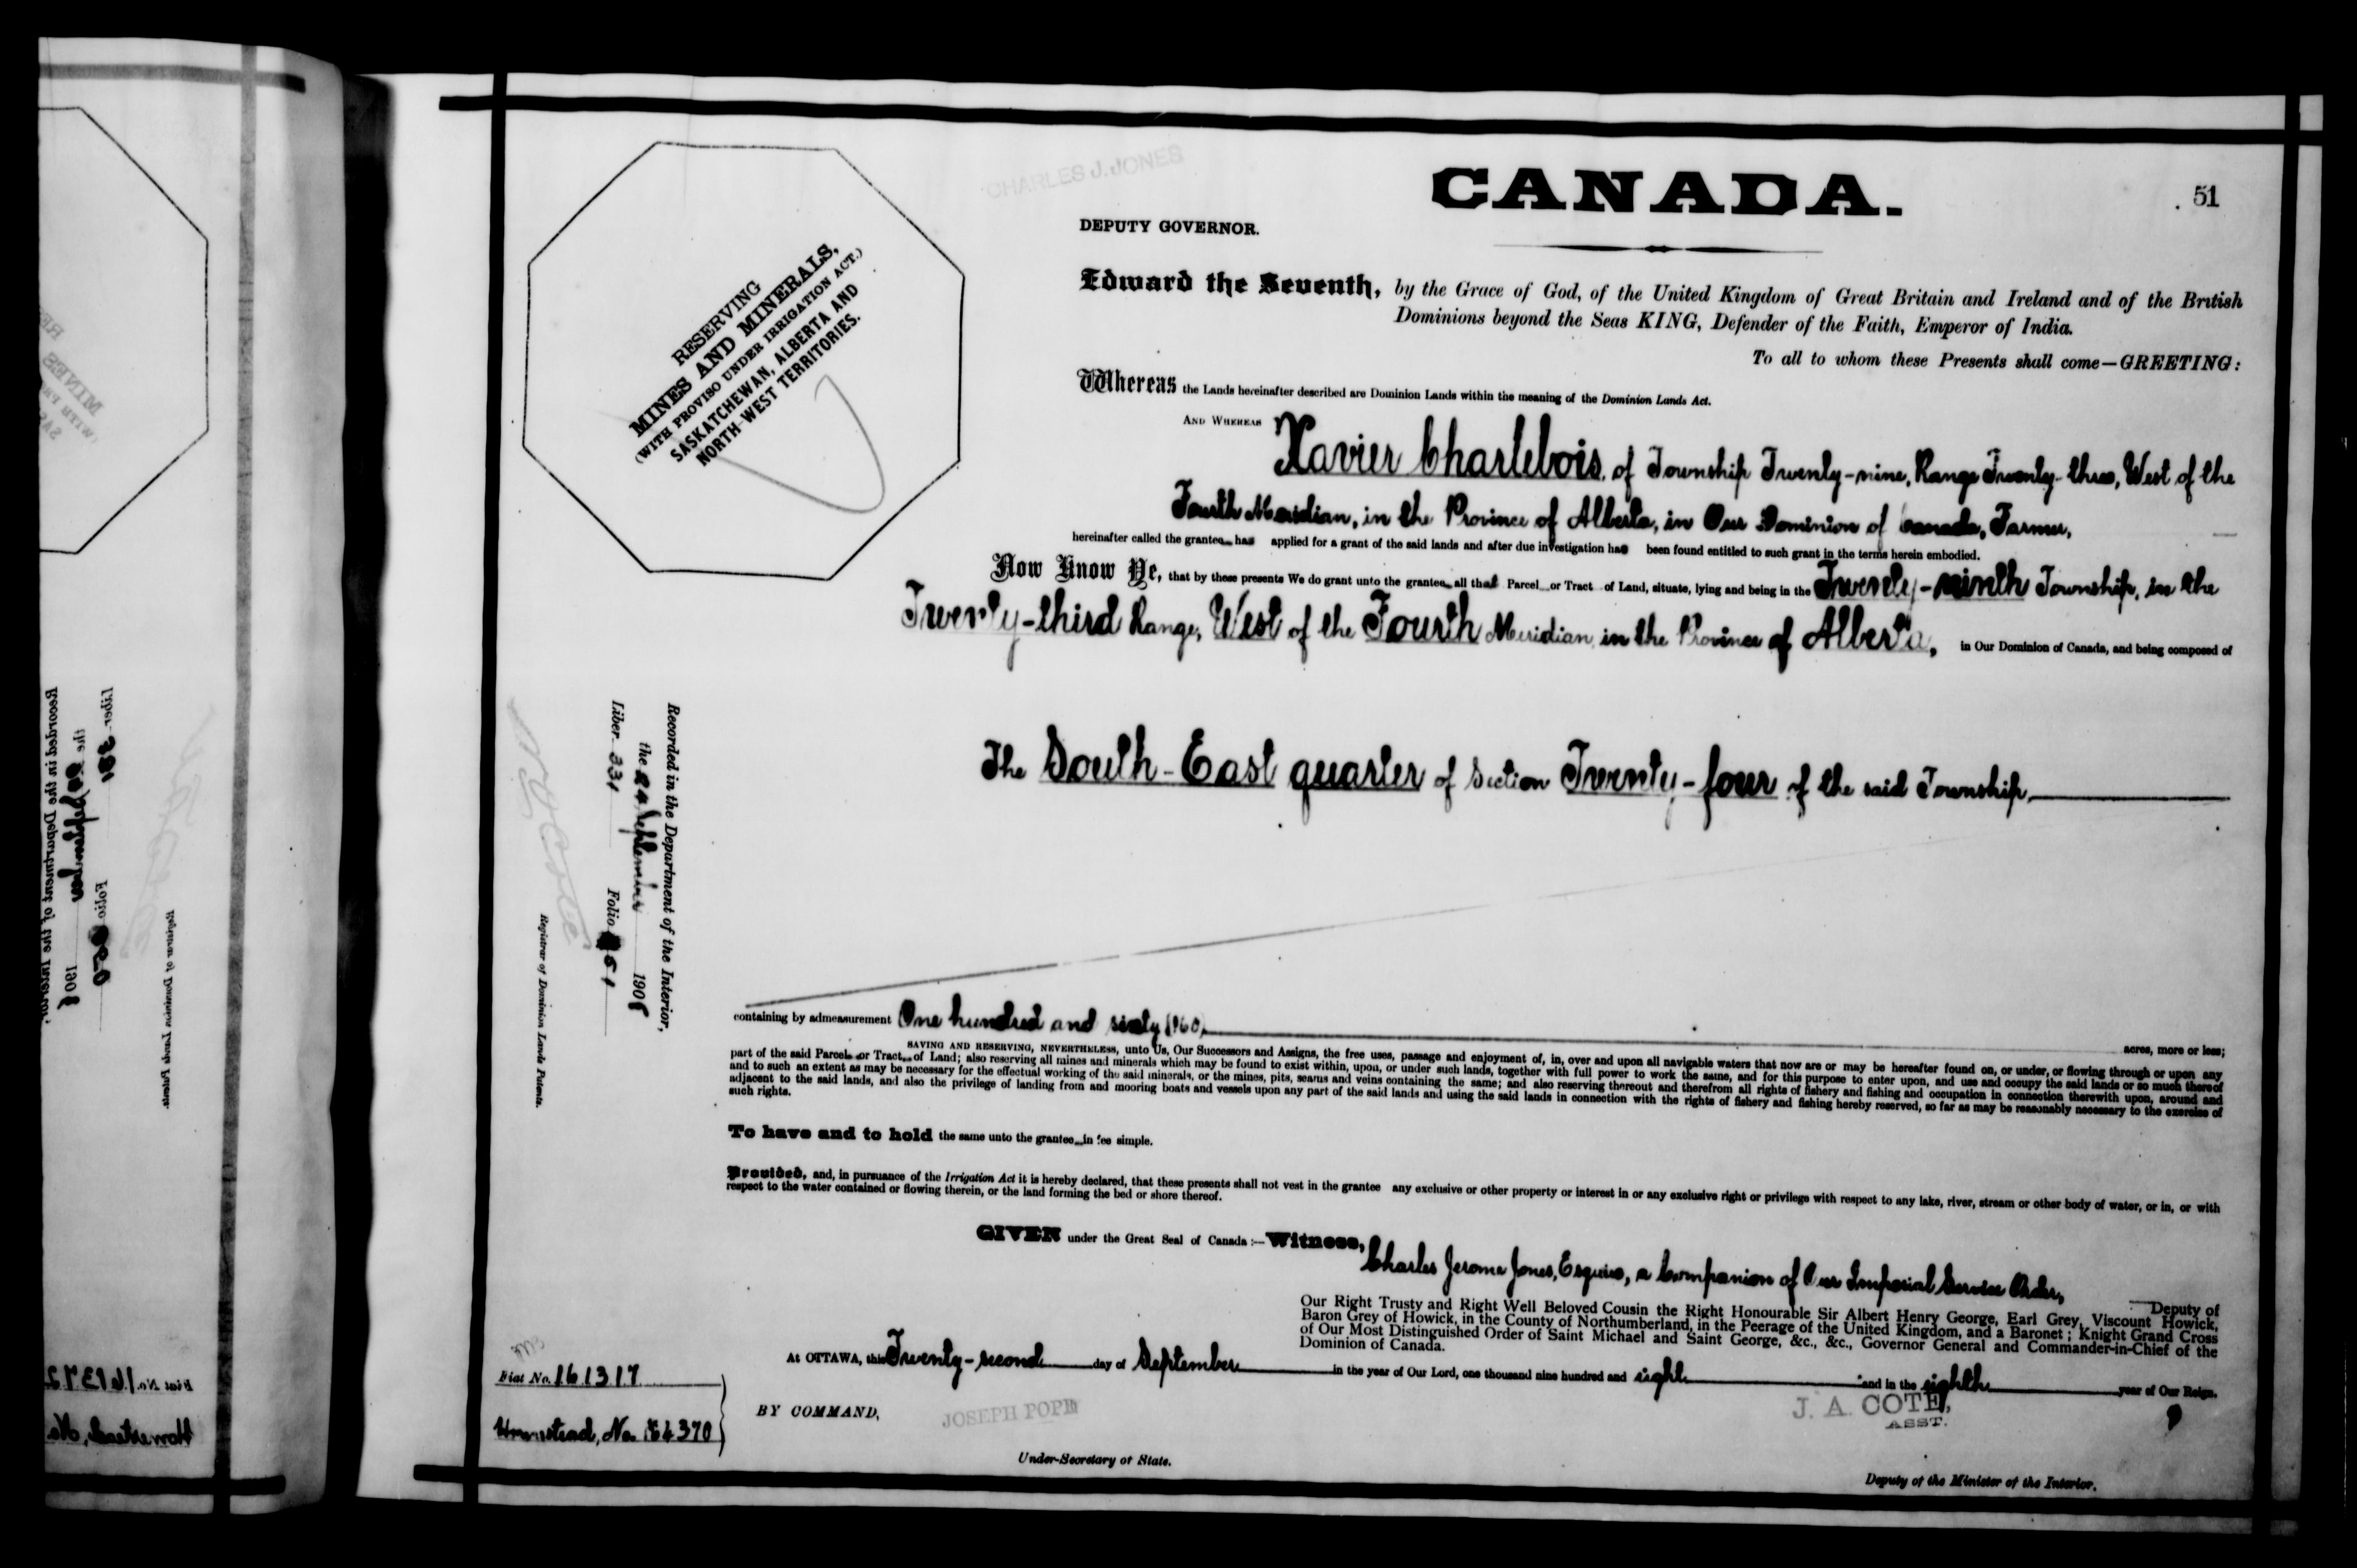 CHARLES J. JONES
CANADA.
51
DEPUTY GOVERNOR.
RESERVING
MINES AND MINERALS,
(WITH PROVISO UNDER IRRIGATION ACT.)
SASKATCHEWAN, ALBERTA AND
NORTH-WEST TERRITORIES.
Edward the Seventh, by the Grace of God, of the United Kingdom of Great Britain and Ireland and of the British
Dominions beyond the Seas KING, Defender of the Faith, Emperor of India.
To all to whom these Presents shall come—GREETING:
Whereas the Lands hereinafter described are Dominion Lands within the meaning of the Dominion Lands Act.
AND WHEREAS Xavier Charlebois, of Township Twenty-nine, Range Twenty-three, West of the
Fourth Meridian, in the Province of Alberta, in Our Dominion of Canada, Farmer,
hereinafter called the grantee has applied for a grant of the said lands and after due investigation has been found entitled to such grant in the terms herein embodied.
Now Know Ye, that by these presents We do grant unto the grantee all that Parcel or Tract of Land, situate, lying and being in the Twenty-ninth Township, in the
Twenty-third Range, West of the Fourth Meridian, in the Province of Alberta, in Our Dominion of Canada, and being composed of
The South-East quarter of Section Twenty-four of the said Township,
Recorded in the Department of the Interior,
the 24 September 1908
Liber 331 Folio 51
Registrar of Dominion Lands Patents.
containing by admeasurement One hundred and sixty (160)
acres, more or less;
SAVING AND RESERVING, NEVERTHELESS, unto Us, Our Successors and Assigns, the free uses, passage and enjoyment of, in, over and upon all navigable waters that now are or may be hereafter found on, or under, or flowing through or upon any
part of the said Parcel or Tract of Land; also reserving all mines and minerals which may be found to exist within, upon, or under such lands, together with full power to work the same, and for this purpose to enter upon, and use and occupy the said lands or so much thereof
and to such an extent as may be necessary for the effectual working of the said minerals, or the mines, pits, seams and veins containing the same; and also reserving thereout and therefrom all rights of fishery and fishing and occupation in connection therewith upon, around and
adjacent to the said lands, and also the privilege of landing from and mooring boats and vessels upon any part of the said lands and using the said lands in connection with the rights of fishery and fishing hereby reserved, so far as may be reasonably necessary to the exercise of
such rights.
To have and to hold the same unto the grantee in fee simple.
Provided, and, in pursuance of the Irrigation Act it is hereby declared, that these presents shall not vest in the grantee any exclusive or other property or interest in or any exclusive right or privilege with respect to any lake, river, stream or other body of water, or in, or with
respect to the water contained or flowing therein, or the land forming the bed or shore thereof.
GIVEN under the Great Seal of Canada:—Witness,
Charles Jerome Jones, Esquire, a Companion of Our Imperial Service Order,
Deputy of
Our Right Trusty and Right Well Beloved Cousin the Right Honourable Sir Albert Henry George, Earl Grey, Viscount Howick,
Baron Grey of Howick, in the County of Northumberland, in the Peerage of the United Kingdom, and a Baronet; Knight Grand Cross
of Our Most Distinguished Order of Saint Michael and Saint George, &c., &c., Governor General and Commander-in-Chief of the
Dominion of Canada.
At OTTAWA, this Twenty-second day of September in the year of Our Lord, one thousand nine hundred and eight and in the eighth year of Our Reign.
Fiat No. 161317
Homestead, No.
BY COMMAND,
JOSEPH POPE
Under-Secretary of State.
J. A. COTE,
ASST.
Deputy of the Minister of the Interior.